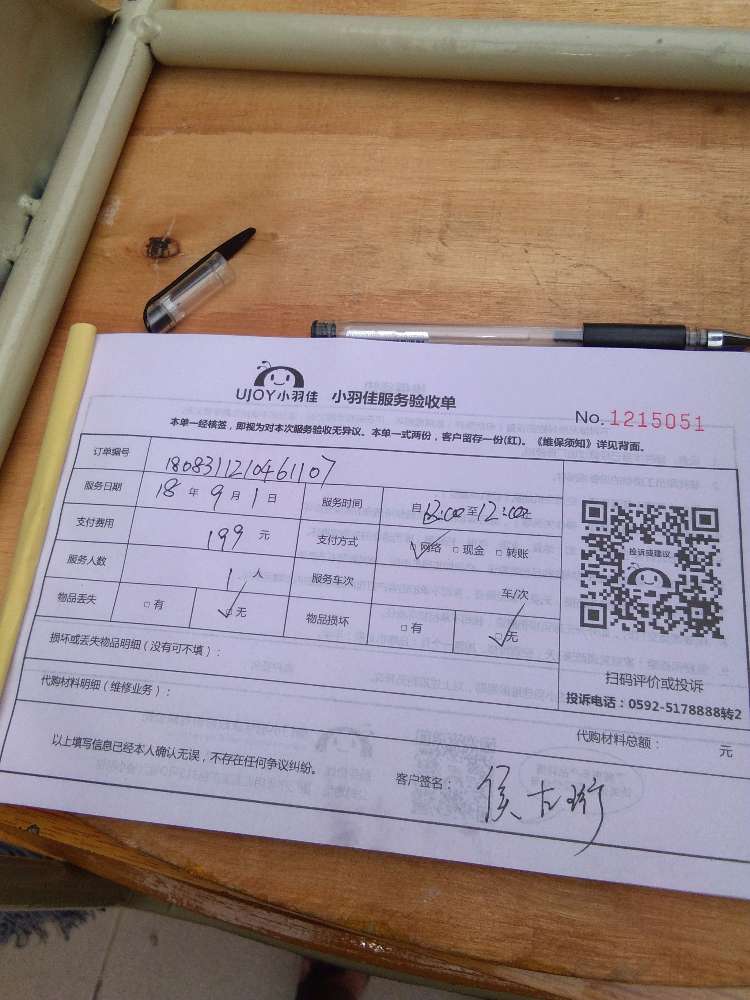 UJOY小羽佳 小羽佳服务验收单
No. 1215051
本单一经核签，即视为对本次服务验收无异议。本单一式两份，客户留存一份(红)。《维保须知》详见背面。
订单编号 1808311210461107
服务日期 18 年 9 月 1 日 服务时间 自 至12:00
支付费用 199 元 支付方式 □网络 □现金 □转账
服务人数 1 人 服务车次 车/次
物品丢失 □有 □无 物品损坏 □有 □无
投诉或建议
损坏或丢失物品明细（没有可不填）：
扫码评价或投诉
投诉电话：0592-5178888转2
代购材料明细（维修业务）：
代购材料总额： 元
以上填写信息已经本人确认无误，不存在任何争议纠纷。
客户签名： 侯